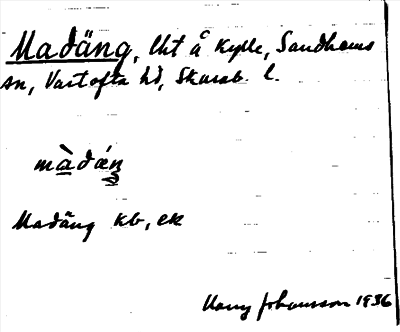 Madäng, lht å Kylle, Sandhems
sn, Vartofta hd, Skarab. l.
màdæŋ
Madäng kb, ek
Harry Johansson 1936